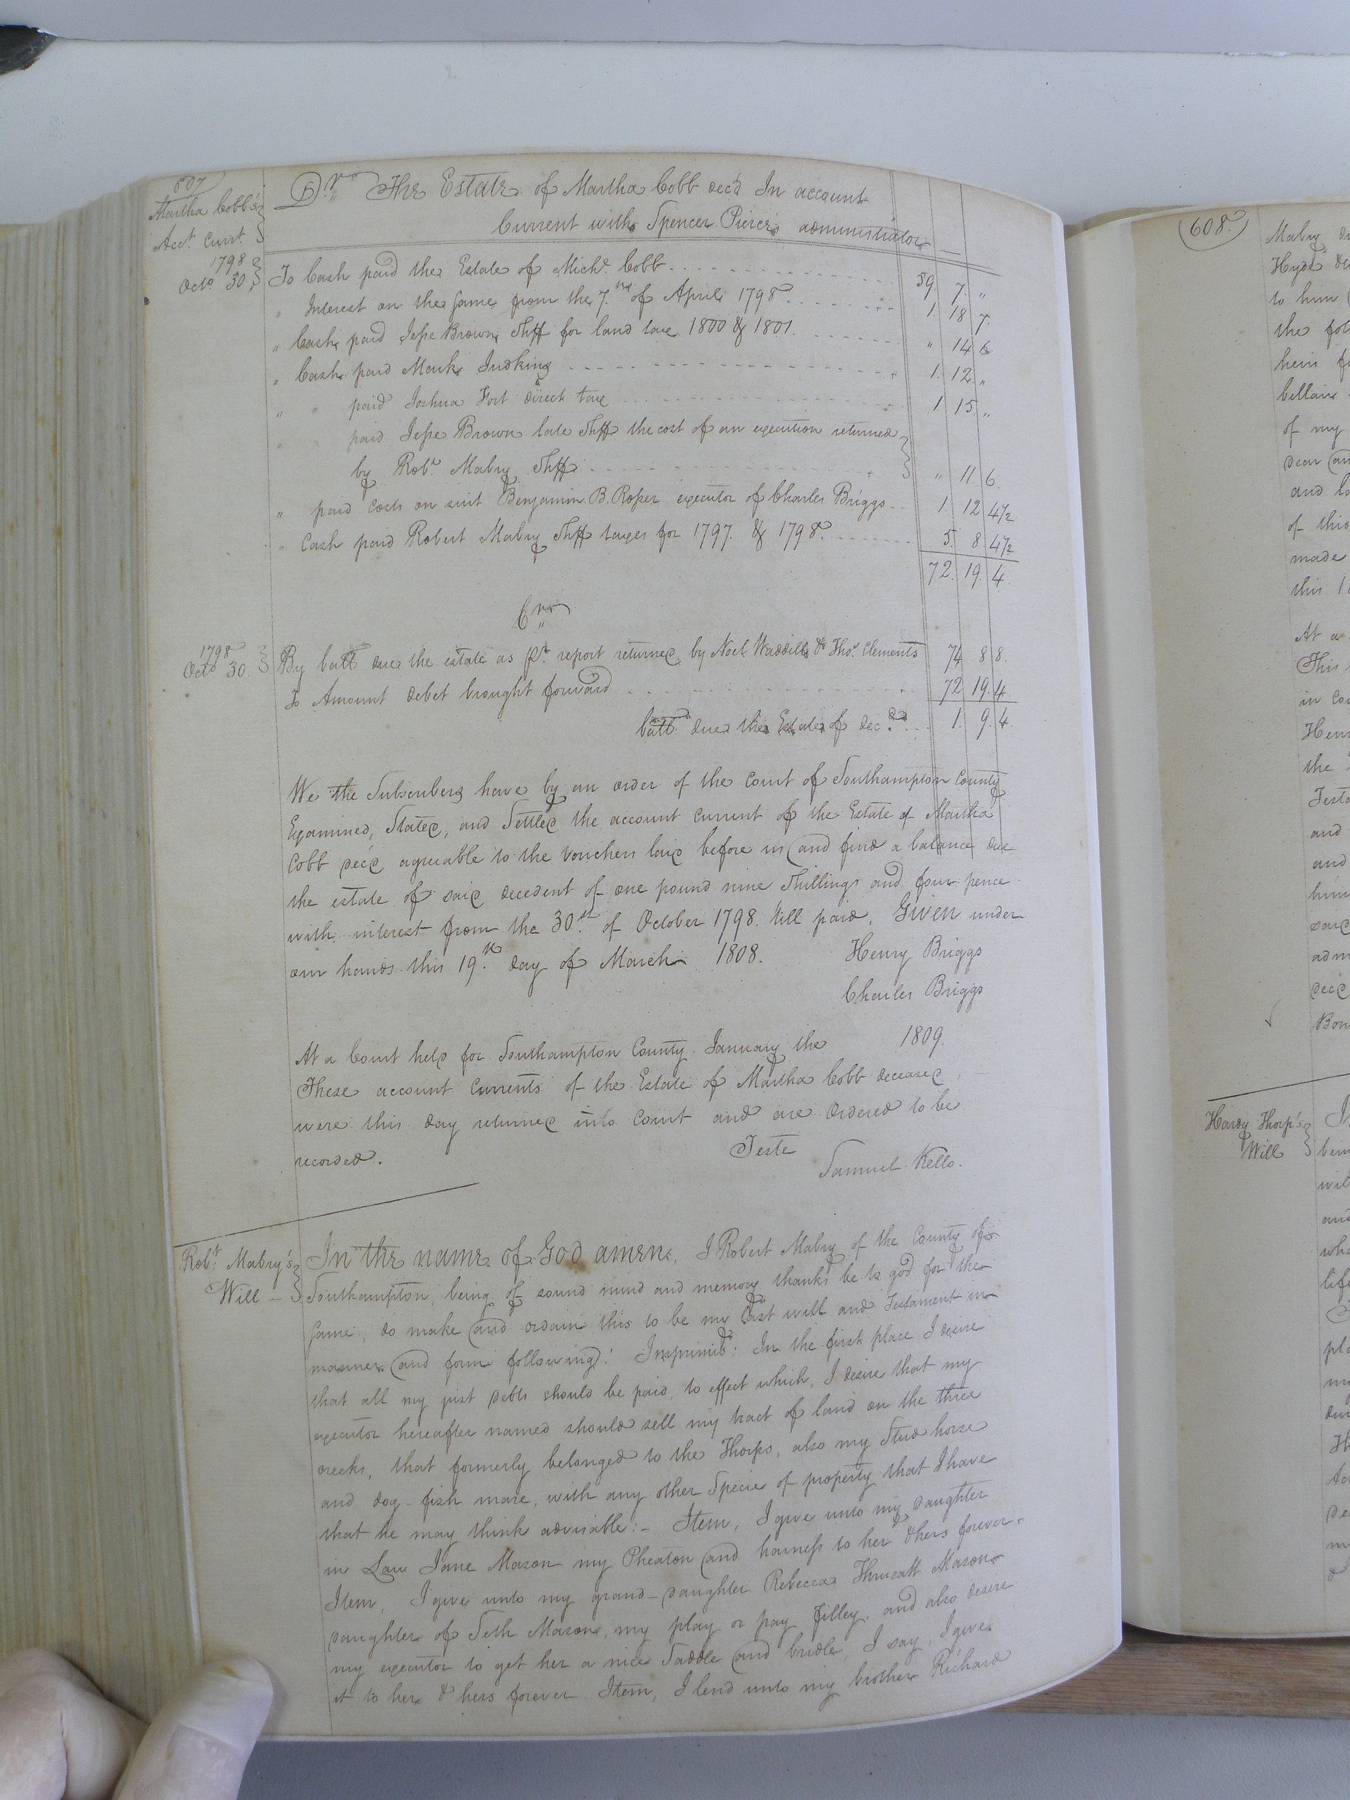 607
Martha Cobb's
Acct. Currt.
Dr. The Estate of Martha Cobb dec'd In account
Current with Spencer Pierce administrator
1798
Octo. 30
To Cash paid the Estate of Michl. Cobb 59 7 "
" Interest on the same from the 7th of April 1798 1 18 7
" Cash paid Jesse Brown Shff for land tax 1800 & 1801 " 14 6
" Cash paid Mark Judkins 1 12 "
" " paid Joshua Fort direct tax 1 15 "
" paid Jesse Brown late Shff the cost of an execution returned
by Robt. Mabry Shff " 11 6
" paid costs on suit Benjamin B. Roper executor of Charles Briggs 1 12 4½
" Cash paid Robert Mabry Shff taxes for 1797 & 1798 5 8 4½
72 19 4
Cr.
1798
Octo. 30
By ball. due the estate as pr. report returned by Noel Waddill & Thos. Clements 74 8 8
To Amount debet brought forward 72 19 4
ball. due the Estate of decd. 1 9 4
We the Subscribers have by an order of the court of Southampton County
Examined, Stated, and Settled the account current of the Estate of Martha
Cobb dec'd agreeable to the vouchers laid before us and find a balance due
the estate of said decedent of one pound nine Shillings and four pence
with interest from the 30th of October 1798 till paid. Given under
our hands this 19th day of March 1808.
Henry Briggs
Charles Briggs
At a Court held for Southampton County January the 1809.
These account Currents of the Estate of Martha Cobb deceased
were this day returned into Court and are ordered to be
recorded.
Teste
Samuel Kello.
Robt. Mabry's
Will
In the name of God amen, I Robert Mabry of the County of
Southampton, being of sound mind and memory thanks be to god for the
same, do make and ordain this to be my last will and Testament in
manner and form following: Imprimis: In the first place I desire
that all my just debts should be paid, to effect which, I desire that my
executor hereafter named should sell my tract of land on the three
creeks, that formerly belonged to the Thorps, also my Stud horse
and dog-fish mare, with any other Specie of property that I have
that he may think advisable:- Item, I give unto my daughter
in Law Jane Mason my Pheaton and harness to her & hers forever.
Item, I give unto my grand-daughter Rebecca Thweatt Mason
daughter of Seth Mason, my play or pay filley, and also desire
my executor to get her a nice Saddle and bridle, I say, I give
it to her & hers forever Item, I lend unto my brother Richard
608.
Mabry
to him
the
heir
of my
dear
and
of this
made
this
At a
This
in
the
and
and
Hardy Thorp's
Will